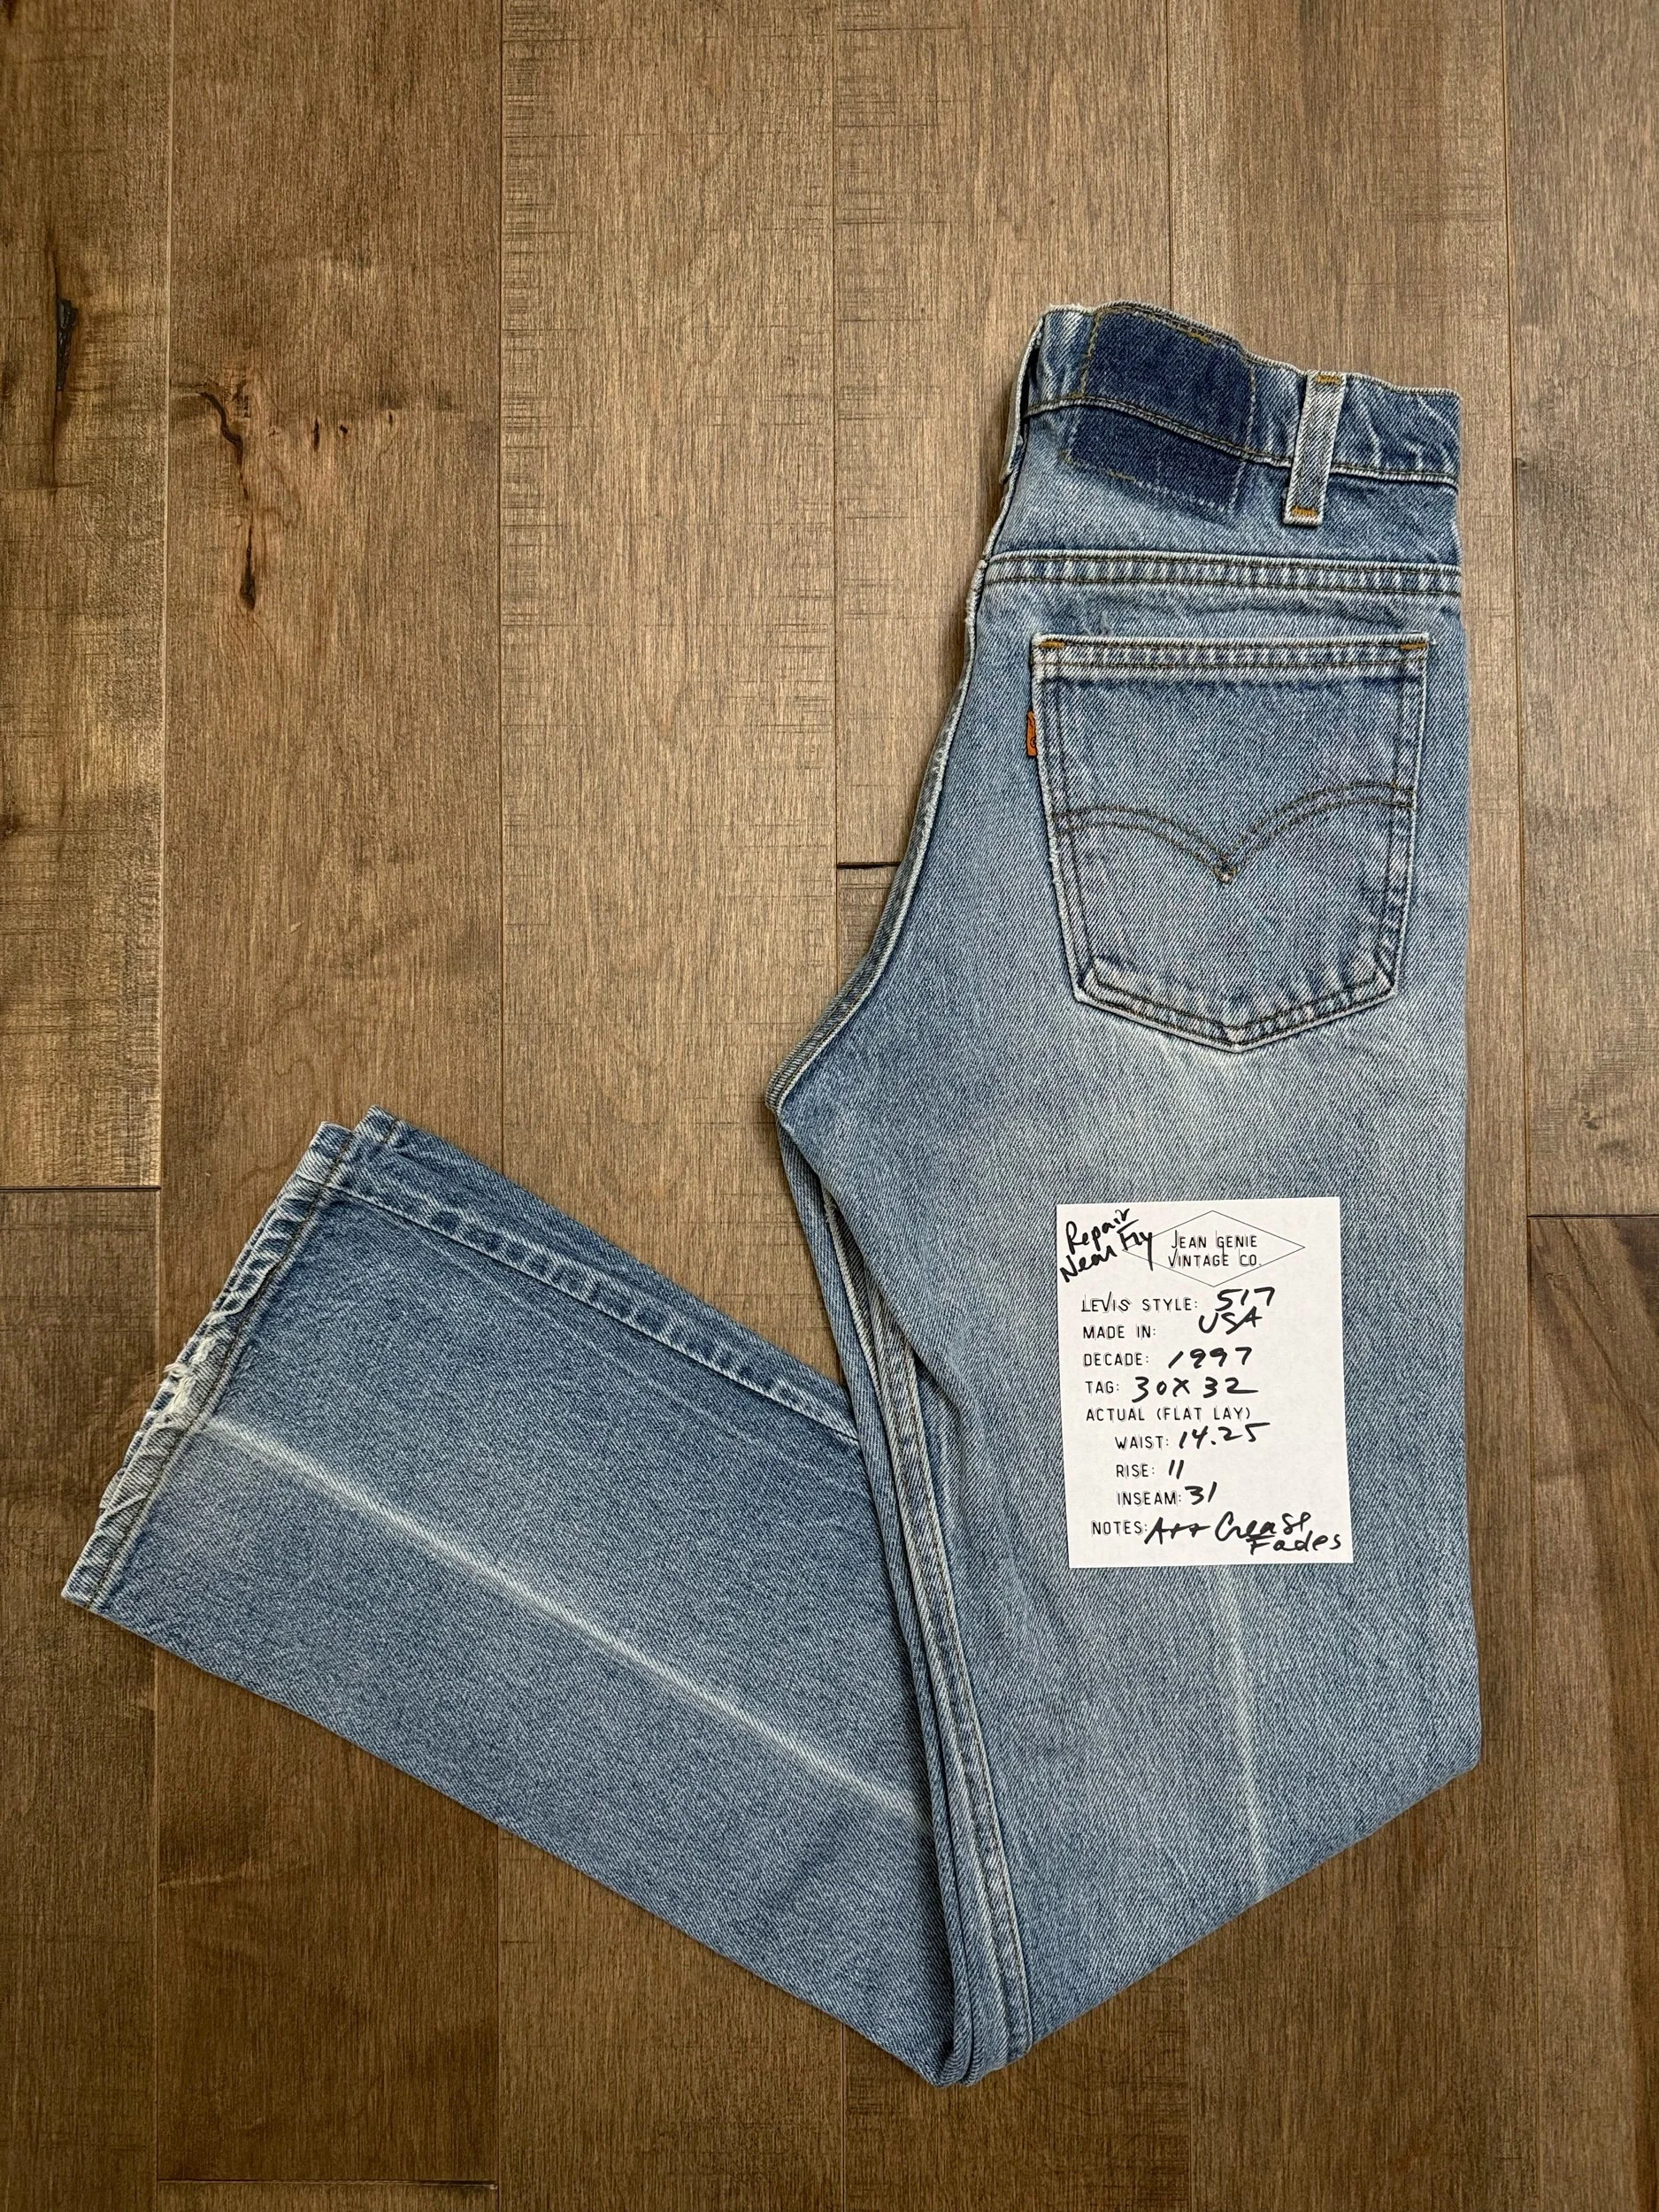 Repair
Near Fly
JEAN GENIE
VINTAGE CO.
LEVIS STYLE: 517
MADE IN: USA
DECADE: 1997
TAG: 30X32
ACTUAL (FLAT LAY)
WAIST: 14.25
RISE: 11
INSEAM: 31
NOTES: A++ Crease
Fades